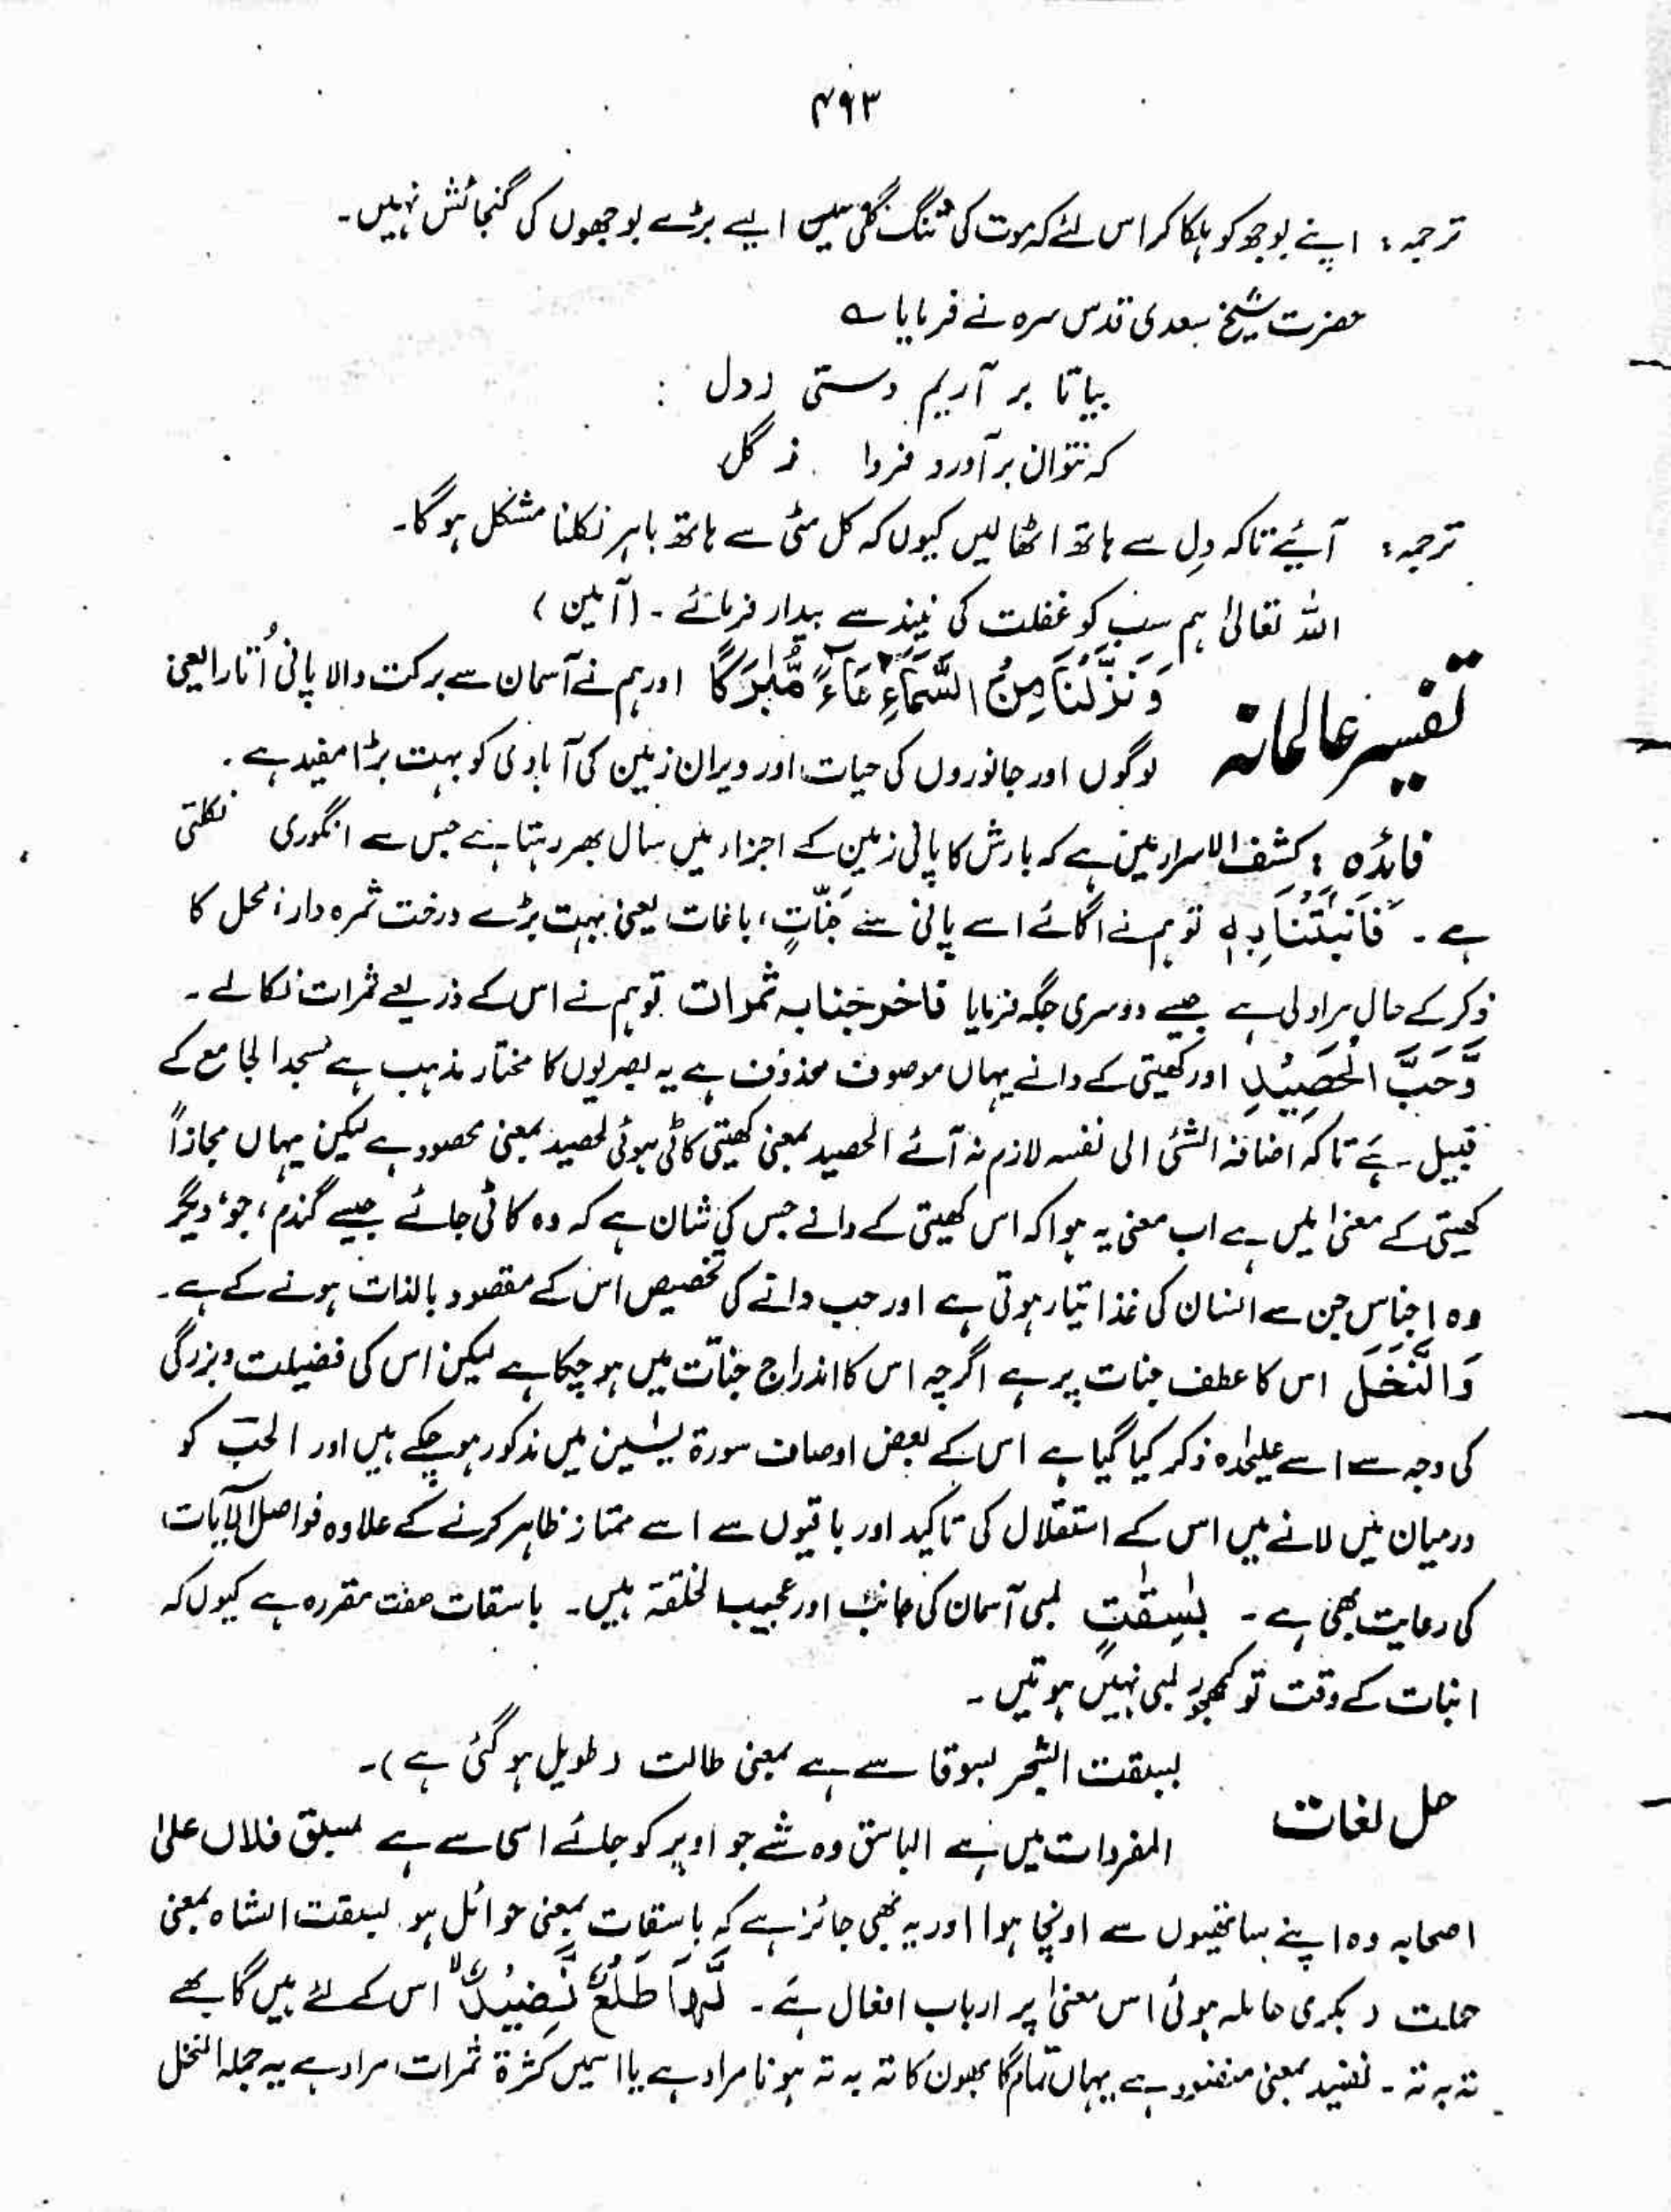 ۴۹۳
ترجمہ: اپنے بوجھ کو ہلکا کر اس لئے کہ موت کی تنگ گلی میں ایسے بڑے بوجھوں کی گنجائش نہیں۔
حضرت شیخ سعدی قدس سرہ نے فرمایا ؎
بیا تا بر آریم دستی ز دل :
کہ نتوان برآورد فردا ز گل
ترجمہ: آئیے تاکہ دِل سے ہاتھ اٹھا لیں کیوں کہ کل مٹی سے ہاتھ باہر نکلنا مشکل ہوگا۔
اللہ تعالیٰ ہم سب کو غفلت کی نیند سے بیدار فرمائے ۔ (آمین)
تفسیر عالمانہ
وَنَزَّلْنَا مِنَ السَّمَآءِ مَآءً مُّبٰرَکًا اور ہم نے آسمان سے برکت والا پانی اُتارا یعنی
لوگوں اور جانوروں کی حیات اور ویران زمین کی آبادی کو بہت بڑا مفید ہے ۔
فائدہ : کشف الاسرار میں ہے کہ بارش کا پانی زمین کے اجزاء میں سال بھر رہتا ہے جس سے انگوری نکلتی
ہے ۔ فَاَنْبَتْنَا بِہٖ تو ہم نے اگائے اسے پانی سے جَنّٰتٍ، باغات یعنی بہت بڑے درخت ثمرہ دار؛ محل کا
ذکر کے حال مراد لی ہے جیسے دوسری جگہ فرمایا فاخرجنا بہ ثمرات تو ہم نے اس کے ذریعے ثمرات نکالے ۔
وَّحَبَّ الْحَصِیْدِ اور کھیتی کے دانے یہاں موصوف محذوف ہے یہ بصریوں کا مختار مذہب ہے مسجد الجامع کے
قبیل ہے تاکہ اضافۃ الشئی الی نفسہ لازم نہ آئے الحصید بمعنی کھیتی کاٹی ہوئی لحصید بمعنی محصود ہے لیکن یہاں مجازاً
کھیتی کے معنیٰ میں ہے اب معنی یہ ہوا کہ اس کھیتی کے دانے جس کی شان ہے کہ وہ کاٹی جائے جیسے گندم، جو، دیگر
وہ اجناس جن سے انسان کی غذا تیار ہوتی ہے اور حب دانے کی تخصیص اس کے مقصود بالذات ہونے کے ہے۔
وَالنَّخْلَ اس کا عطف جنات پر ہے اگرچہ اس کا اندراج جنّات میں ہو چکا ہے لیکن اس کی فضیلت و بزرگی
کی وجہ سے اسے علیٰحدہ ذکر کیا گیا ہے اس کے بعض اوصاف سورۃ یٰسین میں مذکور ہو چکے ہیں اور الحبّ کو
درمیان میں لانے میں اس کے استقلال کی تاکید اور باقیوں سے اسے ممتاز ظاہر کرنے کے علاوہ فواصل الآیات
کی رعایت بھی ہے ۔ بٰسِقٰتٍ لمبی آسمان کی جانب اور عجیب الخلقۃ ہیں ۔ باسقات صفت مقررہ ہے کیوں کہ
انبات کے وقت تو کھجور لمبی نہیں ہوتیں ۔
حل لغات
بسقت الشجر بسوقا سے ہے بمعنی طالت (طویل ہوگئی ہے)۔
المفردات میں ہے الباسق وہ شے جو اوپر کو جائے اسی سے ہے بسق فلاں علیٰ
اصحابہ وہ اپنے ساتھیوں سے اونچا ہوا اور یہ بھی جائز ہے کہ باسقات بمعنی حوائل ہو بسقت الشاہ بمعنی
حملت (بکری حاملہ ہوئی اس معنیٰ پر ارباب افعال ہے ۔ لَّہَا طَلْعٌ نَّضِیْدٌ اس کے لئے ہیں گابھے
تہ بہ تہ ۔ نضید بمعنی منضود ہے یہاں تمام گابھوں کا تہ بہ تہ ہونا مراد ہے یا اسمیں کثرۃ ثمرات مراد ہے یہ جملہ النخل